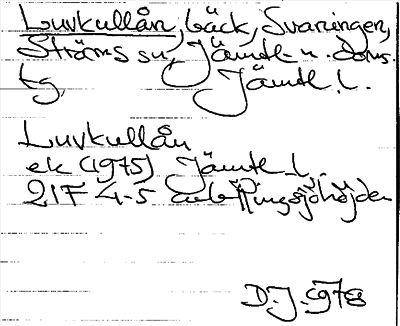 Luvkullån, bäck, Svaningen,
Ströms sn, Jämtl. n. doms.
tg, Jämtl. L.
Luvkullån
ek (1975) Jämtl. L.
21F 4-5 a-b Pingsjöhöjden
D.J. 1978